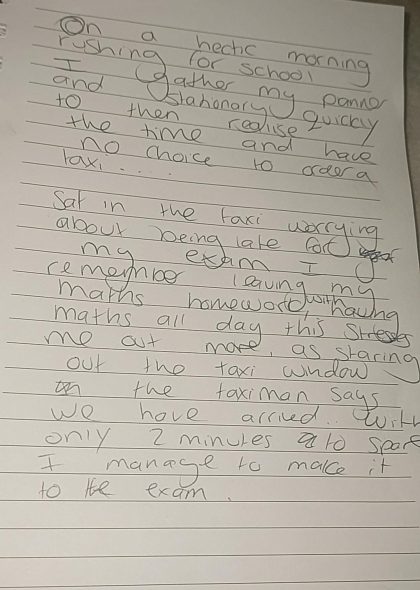 On a hectic morning
rushing for school
I gather my panno
and stationary quickly
to then realise
the time and have
no choice to order a
taxi.....
Sat in the taxi worrying
about being late for
my exam I
remember leaving my
maths homework, with having
maths all day this stresses
me out more, as staring
out the taxi window
the taximan says
we have arrived.. with
only 2 minutes to spare
I manage to make it
to the exam.